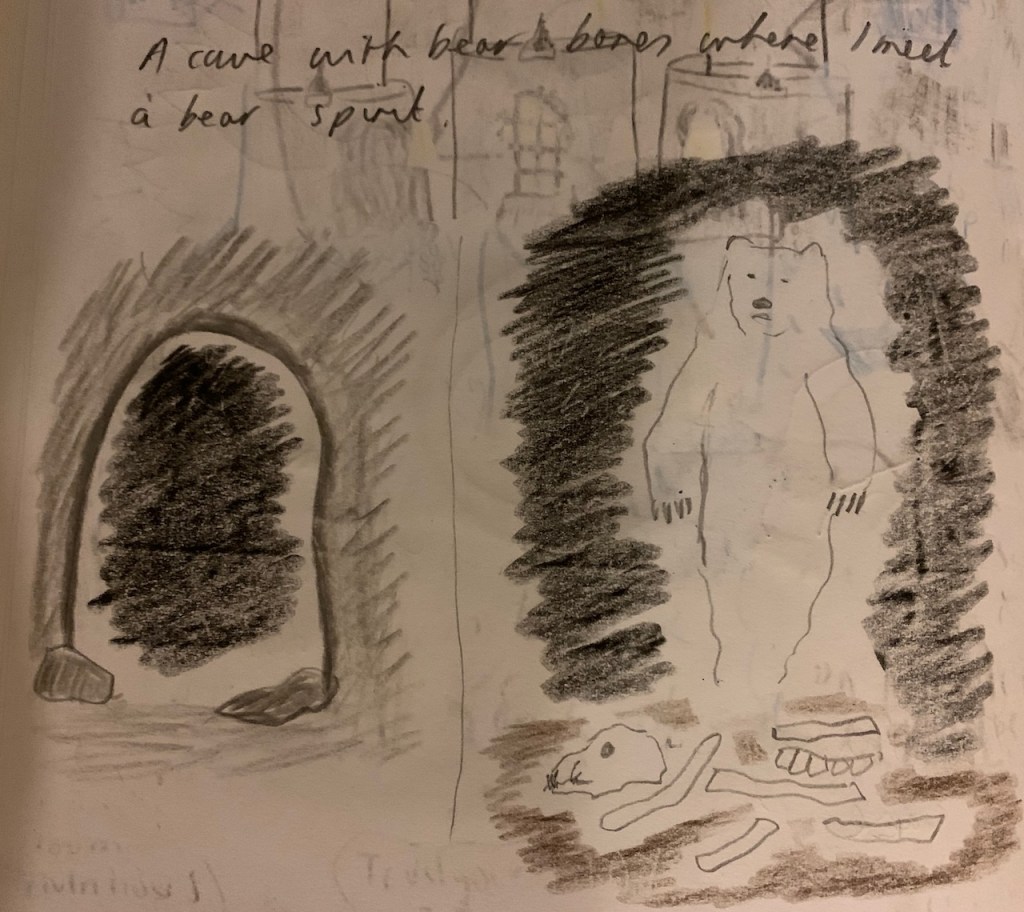 A cave with bear bones where I meet
a bear spirit.